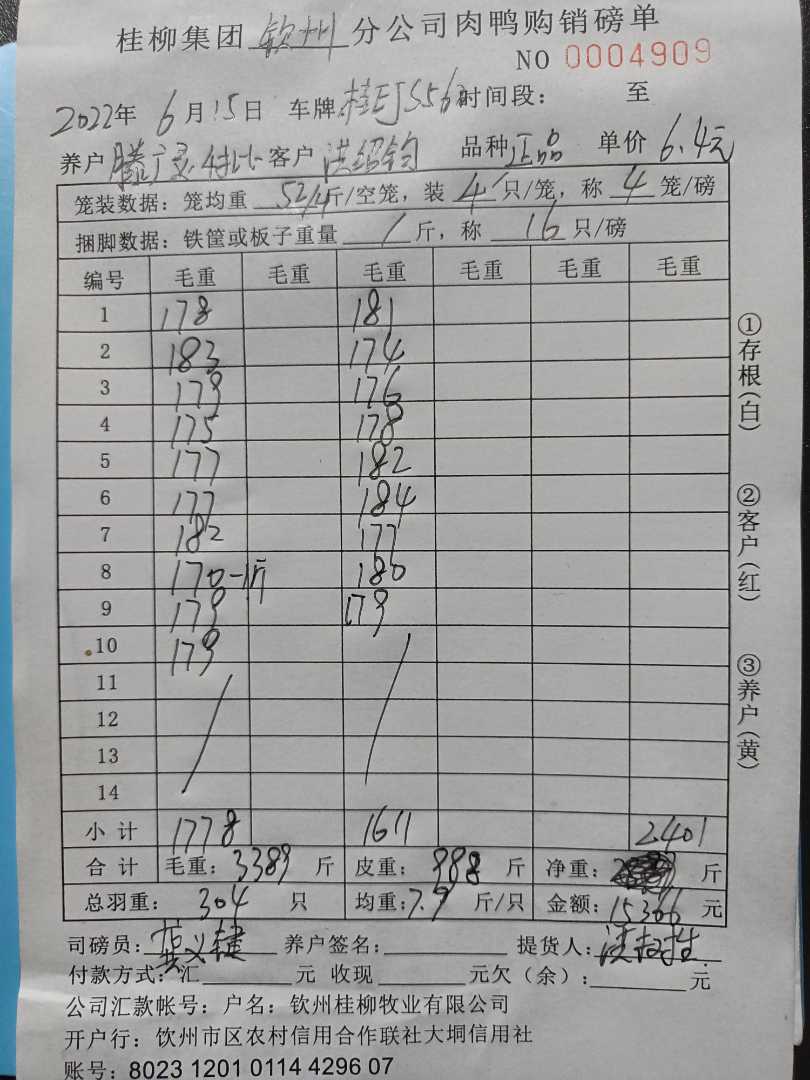 桂柳集团 钦州 分公司肉鸭购销磅单
NO 0004909
2022年 6月15日 车牌 桂EJS56 时间段： 至
养户 滕广灵 客户 洪绍钧 品种 正品 单价 6.4元
笼装数据：笼均重 52/4 斤/空笼，装 4 只/笼，称 4 笼/磅
捆脚数据：铁筐或板子重量 / 斤，称 16 只/磅
编号 毛重 毛重 毛重 毛重 毛重 毛重
1 178 181
2 183 174
3 179 176
4 175 178
5 177 182
6 177 184
7 182 177
8 170-1斤 180
9 179 179
10 179
11
12
13
14
小计 1778 1611 2401
合计 毛重：3389 斤 皮重：988 斤 净重： 斤
总羽重： 304 只 均重：7.9 斤/只 金额：15366 元
司磅员： 养户签名： 提货人：
付款方式：汇 元 收现 元欠（余）： 元
公司汇款帐号：户名：钦州桂柳牧业有限公司
开户行：钦州市区农村信用合作联社大垌信用社
账号：8023 1201 0114 4296 07
①存根（白）
②客户（红）
③养户（黄）